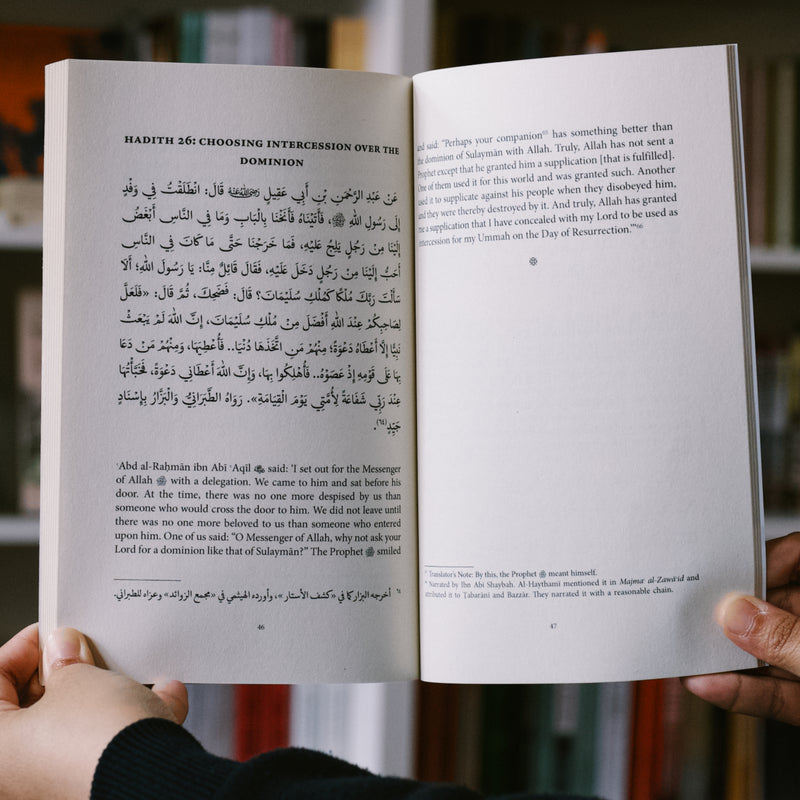 HADITH 26: CHOOSING INTERCESSION OVER THE
DOMINION
عَنْ عَبْدِ الرَّحْمَنِ بْنِ أَبِي عَقِيلٍ رَضِيَ اللَّهُ عَنْهُ قَالَ: انْطَلَقْتُ فِي وَفْدٍ
إِلَى رَسُولِ اللهِ ﷺ، فَأَتَيْنَاهُ فَأَنَخْنَا بِالْبَابِ وَمَا فِي النَّاسِ أَبْغَضُ
إِلَيْنَا مِنْ رَجُلٍ يَلِجُ عَلَيْهِ، فَمَا خَرَجْنَا حَتَّى مَا كَانَ فِي النَّاسِ
أَحَبُّ إِلَيْنَا مِنْ رَجُلٍ دَخَلَ عَلَيْهِ، فَقَالَ قَائِلٌ مِنَّا: يَا رَسُولَ اللهِ؛ أَلَا
سَأَلْتَ رَبَّكَ مُلْكًا كَمُلْكِ سُلَيْمَانَ؟ قَالَ: فَضَحِكَ، ثُمَّ قَالَ: «فَلَعَلَّ
لِصَاحِبِكُمْ عِنْدَ اللهِ أَفْضَلَ مِنْ مُلْكِ سُلَيْمَانَ، إِنَّ اللهَ لَمْ يَبْعَثْ
نَبِيًّا إِلَّا أَعْطَاهُ دَعْوَةً؛ مِنْهُمْ مَنِ اتَّخَذَهَا دُنْيَا.. فَأُعْطِيَهَا، وَمِنْهُمْ مَنْ دَعَا
بِهَا عَلَى قَوْمِهِ إِذْ عَصَوْهُ.. فَأُهْلِكُوا بِهَا، وَإِنَّ اللهَ أَعْطَانِي دَعْوَةً، فَخَبَّأْتُهَا
عِنْدَ رَبِّي شَفَاعَةً لِأُمَّتِي يَوْمَ الْقِيَامَةِ». رَوَاهُ الطَّبَرَانِيُّ وَالْبَزَّارُ بِإِسْنَادٍ
جَيِّدٍ(٦٤).
ʿAbd al-Raḥmān ibn Abī ʿAqīl رضي الله عنه said: 'I set out for the Messenger
of Allah ﷺ with a delegation. We came to him and sat before his
door. At the time, there was no one more despised by us than
someone who would cross the door to him. We did not leave until
there was no one more beloved to us than someone who entered
upon him. One of us said: "O Messenger of Allah, why not ask your
Lord for a dominion like that of Sulaymān?" The Prophet ﷺ smiled
٦٤ أخرجه البزار كما في «كشف الأستار»، وأورده الهيثمي في «مجمع الزوائد» وعزاه للطبراني.
46
and said: "Perhaps your companion⁶⁵ has something better than
the dominion of Sulaymān with Allah. Truly, Allah has not sent a
Prophet except that he granted him a supplication [that is fulfilled].
One of them used it for this world and was granted such. Another
used it to supplicate against his people when they disobeyed him,
and they were thereby destroyed by it. And truly, Allah has granted
me a supplication that I have concealed with my Lord to be used as
intercession for my Ummah on the Day of Resurrection."'⁶⁶
⁶⁵ Translator's Note: By this, the Prophet ﷺ meant himself.
⁶⁶ Narrated by Ibn Abi Shaybah. Al-Haythami mentioned it in Majmaʿ al-Zawāʾid and
attributed it to Ṭabarāni and Bazzār. They narrated it with a reasonable chain.
47